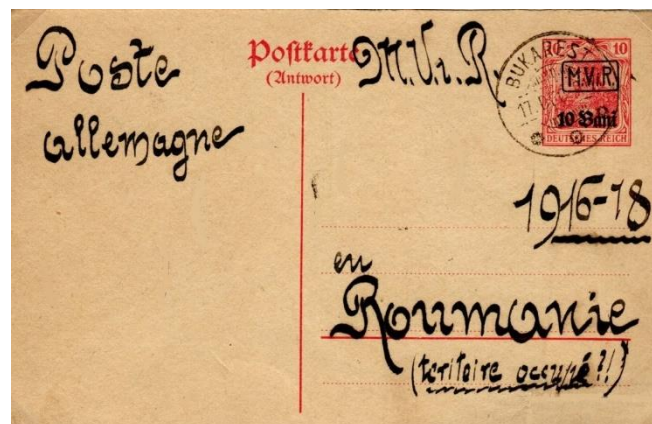 Poste
allemagne
Postkarte
(Antwort)
M.V.i.R.
BUKAREST
17.
10 10
M.V.i.R.
10 Bani
DEUTSCHES REICH
1916-18
en
Roumanie
(territoire occupé?!)